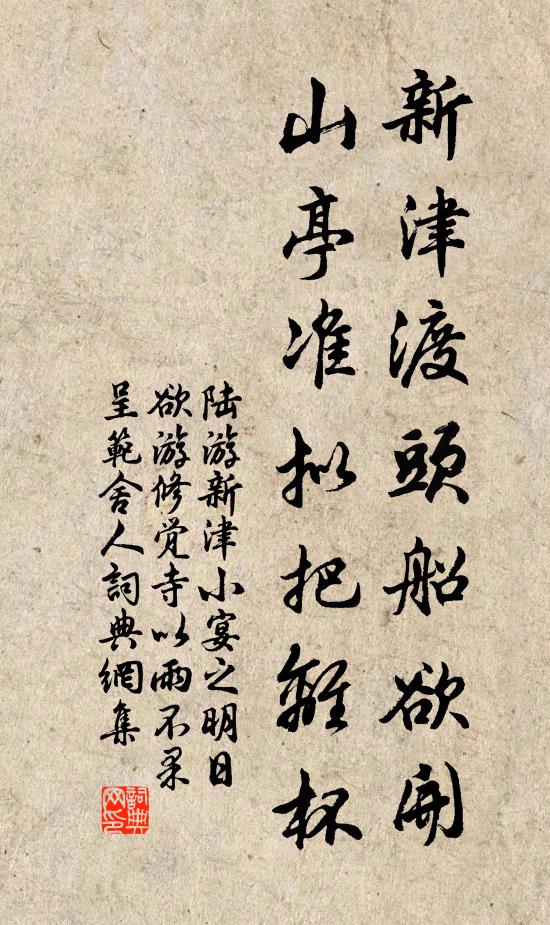 新津渡頭船欲開
山亭准拟把離杯
陆游新津小宴之明日
欲游修觉寺以雨不果
呈範舍人詞典網集
詞典网印